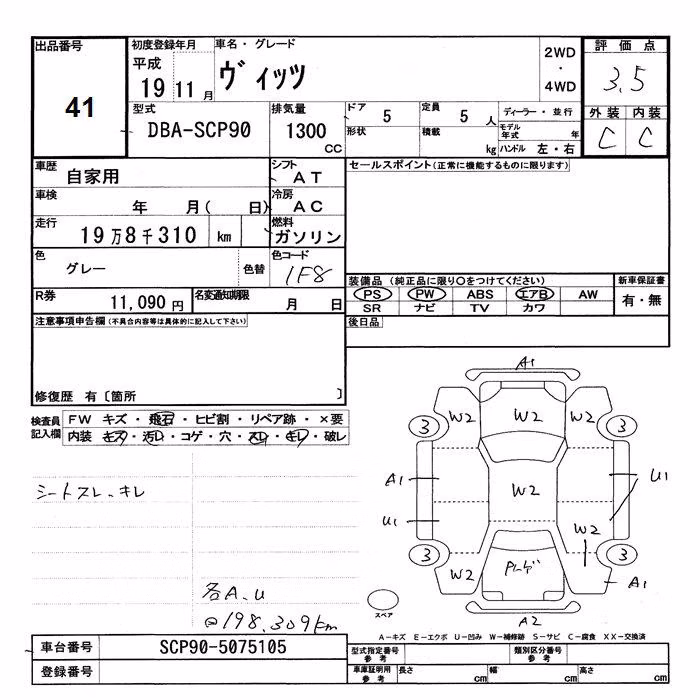 出品番号 初度登録年月 車名・グレード 2WD・4WD 評価点
41 平成 19 11月 ヴィッツ 3.5
型式 排気量 ドア 5 定員 5人 ディーラー・並行 外装 内装
DBA-SCP90 1300cc 形状 積載 kg モデル年式 年 ハンドル 左・右 C C
車歴 自家用 シフト AT セールスポイント(正常に機能するものに限ります)
車検 年 月( 日) 冷房 AC
走行 19万8千310 km 燃料 ガソリン
色 グレー 色替 色コード 1F8
装備品 (純正品に限り○をつけてください) 新車保証書
R券 11,090円 名変通知期限 月 日 PS PW ABS エアB AW 有・無
SR ナビ TV カワ
注意事項申告欄(不具合内容等は具体的に記入して下さい) 後日品
修復歴 有〔箇所 〕
検査員記入欄 FW キズ・飛石・ヒビ割・リペア跡・×要
内装 キズ・汚レ・コゲ・穴・スレ・キレ・破レ
シートスレ、キレ
各A、U
198,309km
A1
W2 W2 W2
3 3
A1 W2 U1
U1 W2
3 3
W2 A1
A2
スペア
A-キズ E-エクボ U-凹み W-補修跡 S-サビ C-腐食 XX-交換済
車台番号 SCP90-5075105 型式指定番号 参考 類別区分番号 参考
登録番号 車庫証明用 参考 長さ cm 幅 cm 高さ cm